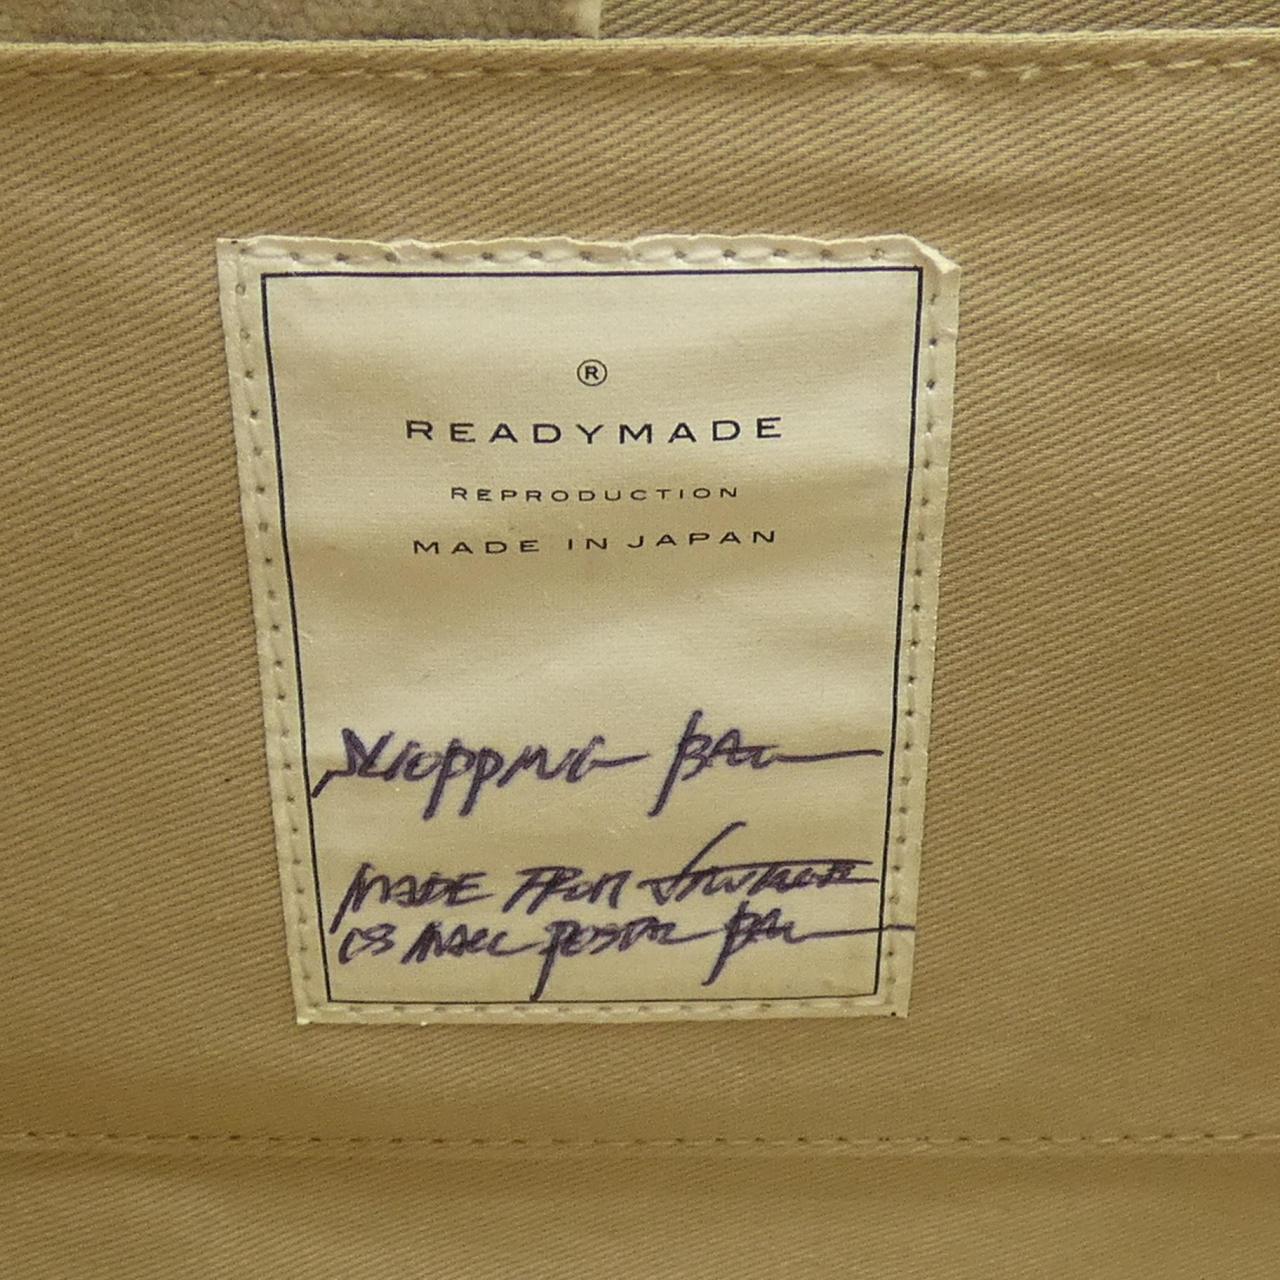 ®
READYMADE
REPRODUCTION
MADE IN JAPAN
SHOPPING BAG
MADE FROM VINTAGE
US MAIL POSTAL BAG